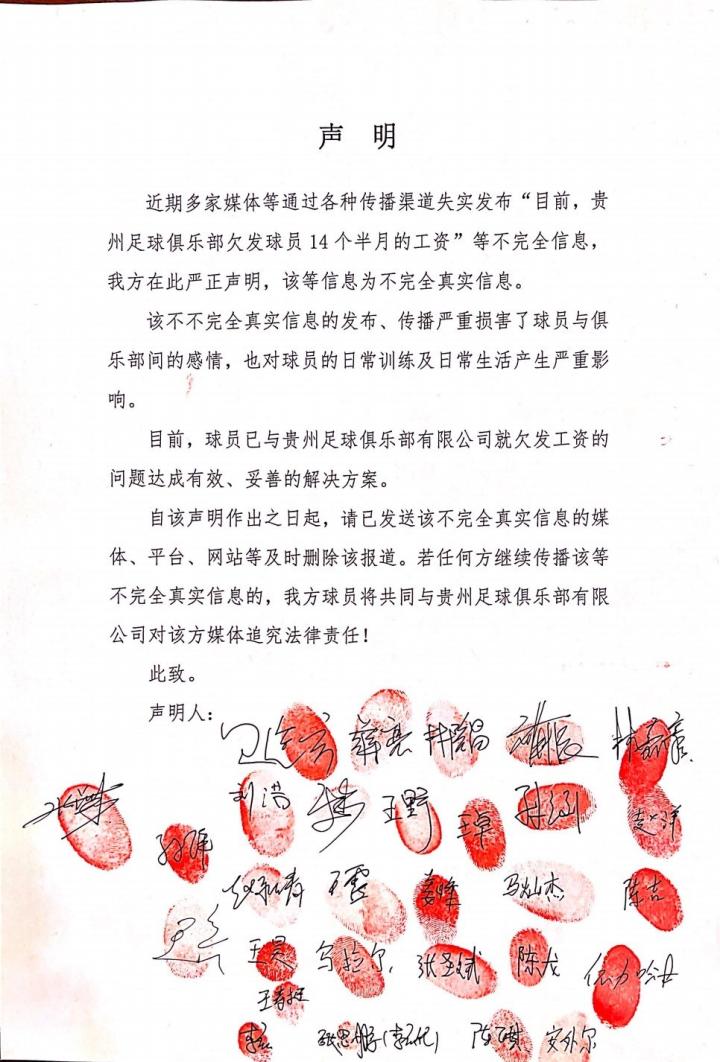 声 明
近期多家媒体等通过各种传播渠道失实发布“目前，贵
州足球俱乐部欠发球员 14 个半月的工资”等不完全信息，
我方在此严正声明，该等信息为不完全真实信息。
该不不完全真实信息的发布、传播严重损害了球员与俱
乐部间的感情，也对球员的日常训练及日常生活产生严重影
响。
目前，球员已与贵州足球俱乐部有限公司就欠发工资的
问题达成有效、妥善的解决方案。
自该声明作出之日起，请已发送该不完全真实信息的媒
体、平台、网站等及时删除该报道。若任何方继续传播该等
不完全真实信息的，我方球员将共同与贵州足球俱乐部有限
公司对该方媒体追究法律责任！
此致。
声明人：
刘浩 王野
马灿杰 陈吉
王昊 乌拉尔 张圣斌 陈龙
安外尔